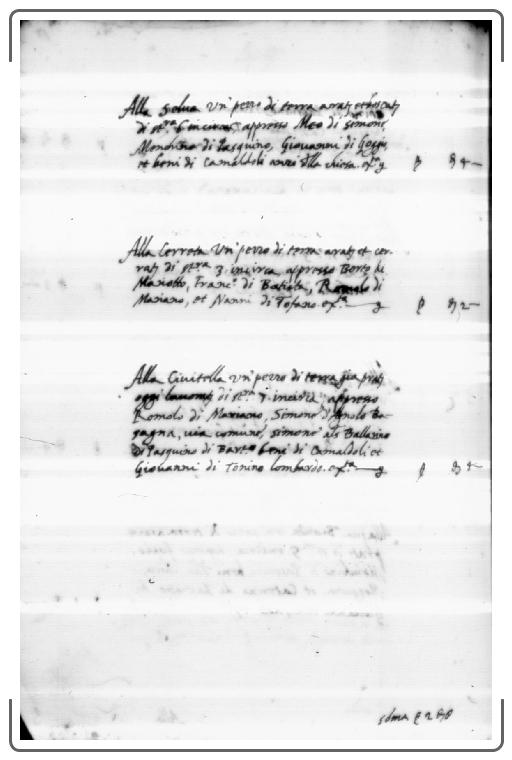 Alla Selva Un' pezzo di terra arat; et boscat;
di st.ra 6 incirca, appresso Meo di Simone,
Monchino di Pasquino, Giovanni di Goggio,
et beni di Camaldoli anzi della chiesa. et.a
Alla Cerreta Un' pezzo di terra arat; et cer-
rat; di st.ra 3. incirca, appresso Berto di
Mariotto, Franc.o di Batista, Romolo di
Mariano, et Nanni di Tofano. et.a
Alla Civitella un' pezzo di terra gia prat;
oggi di st.ra incirca, appresso
Romolo di Mariano, Simone d'Agnolo Ba-
gagna, via comune, Simone als Ballarino
di Pasquino di Bart.o beni di Camaldoli et
Giovanni di Tonino lombardo. et.a